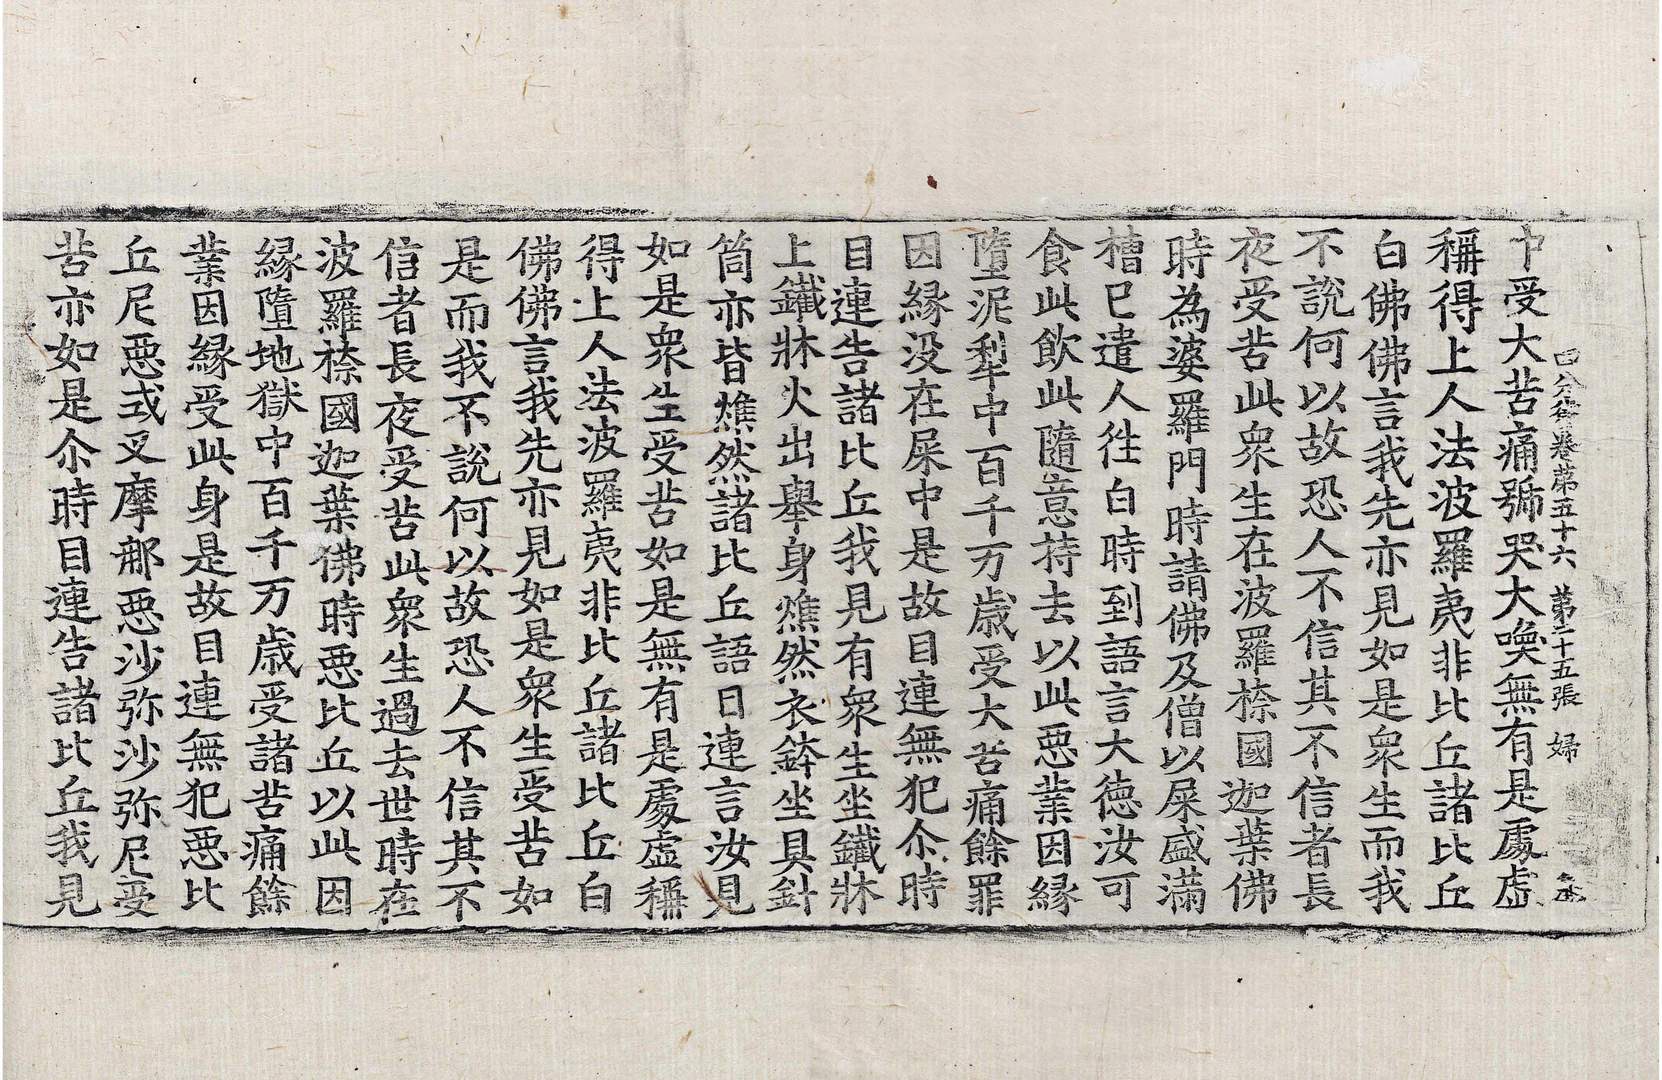 四分律卷第五十六 第二十五張 婦
中受大苦痛號哭大喚無有是處虛
稱得上人法波羅夷非比丘諸比丘
白佛佛言我先亦見如是衆生而我
不說何以故恐人不信其不信者長
夜受苦此衆生在波羅㮈國迦葉佛
時為婆羅門時請佛及僧以屎盛滿
槽已遣人徃白時到語言大德汝可
食此飲此隨意持去以此惡業因緣
墮泥犁中百千万歲受大苦痛餘罪
因緣没在屎中是故目連無犯尒時
目連告諸比丘我見有衆生坐鐵牀
上鐵牀火出舉身燋然衣鉢坐具針
筒亦皆燋然諸比丘語目連言汝見
如是衆生受苦如是無有是處虛稱
得上人法波羅夷非比丘諸比丘白
佛佛言我先亦見如是衆生受苦如
是而我不說何以故恐人不信其不
信者長夜受苦此衆生過去世時在
波羅㮈國迦葉佛時惡比丘以此因
緣墮地獄中百千万歲受諸苦痛餘
業因緣受此身是故目連無犯惡比
丘尼惡式叉摩那惡沙弥沙弥尼受
苦亦如是尒時目連告諸比丘我見